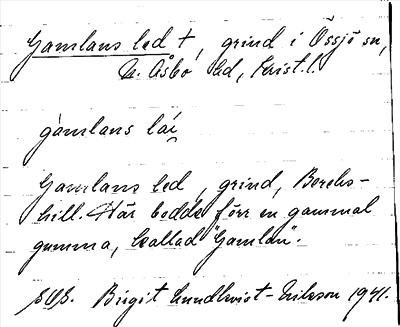 Gamlans led †, grind i Össjö sn,
N. Åsbo hd, Krist. l.
gàmlans lái̯
Gamlans led, grind, Berchs-
hill. Här bodde förr en gammal
gumma, kallad "Gamlan".
Birgit Lundkvist-Erikson 1941.